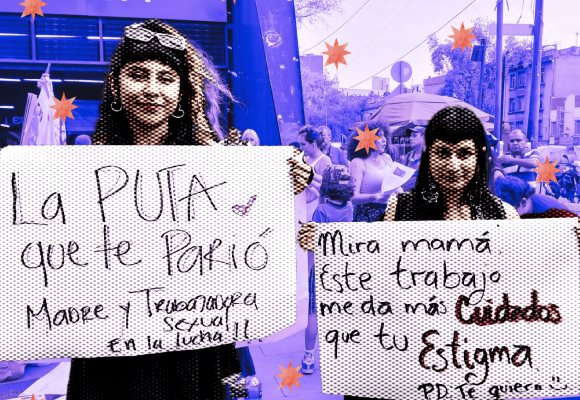 La PUTA
que te Parió
Madre y Trabajadora
Sexual
En la lucha!!
Mira mamá
Este trabajo
me da más Cuidados
que tu
Estigma
P.D. Te quiero